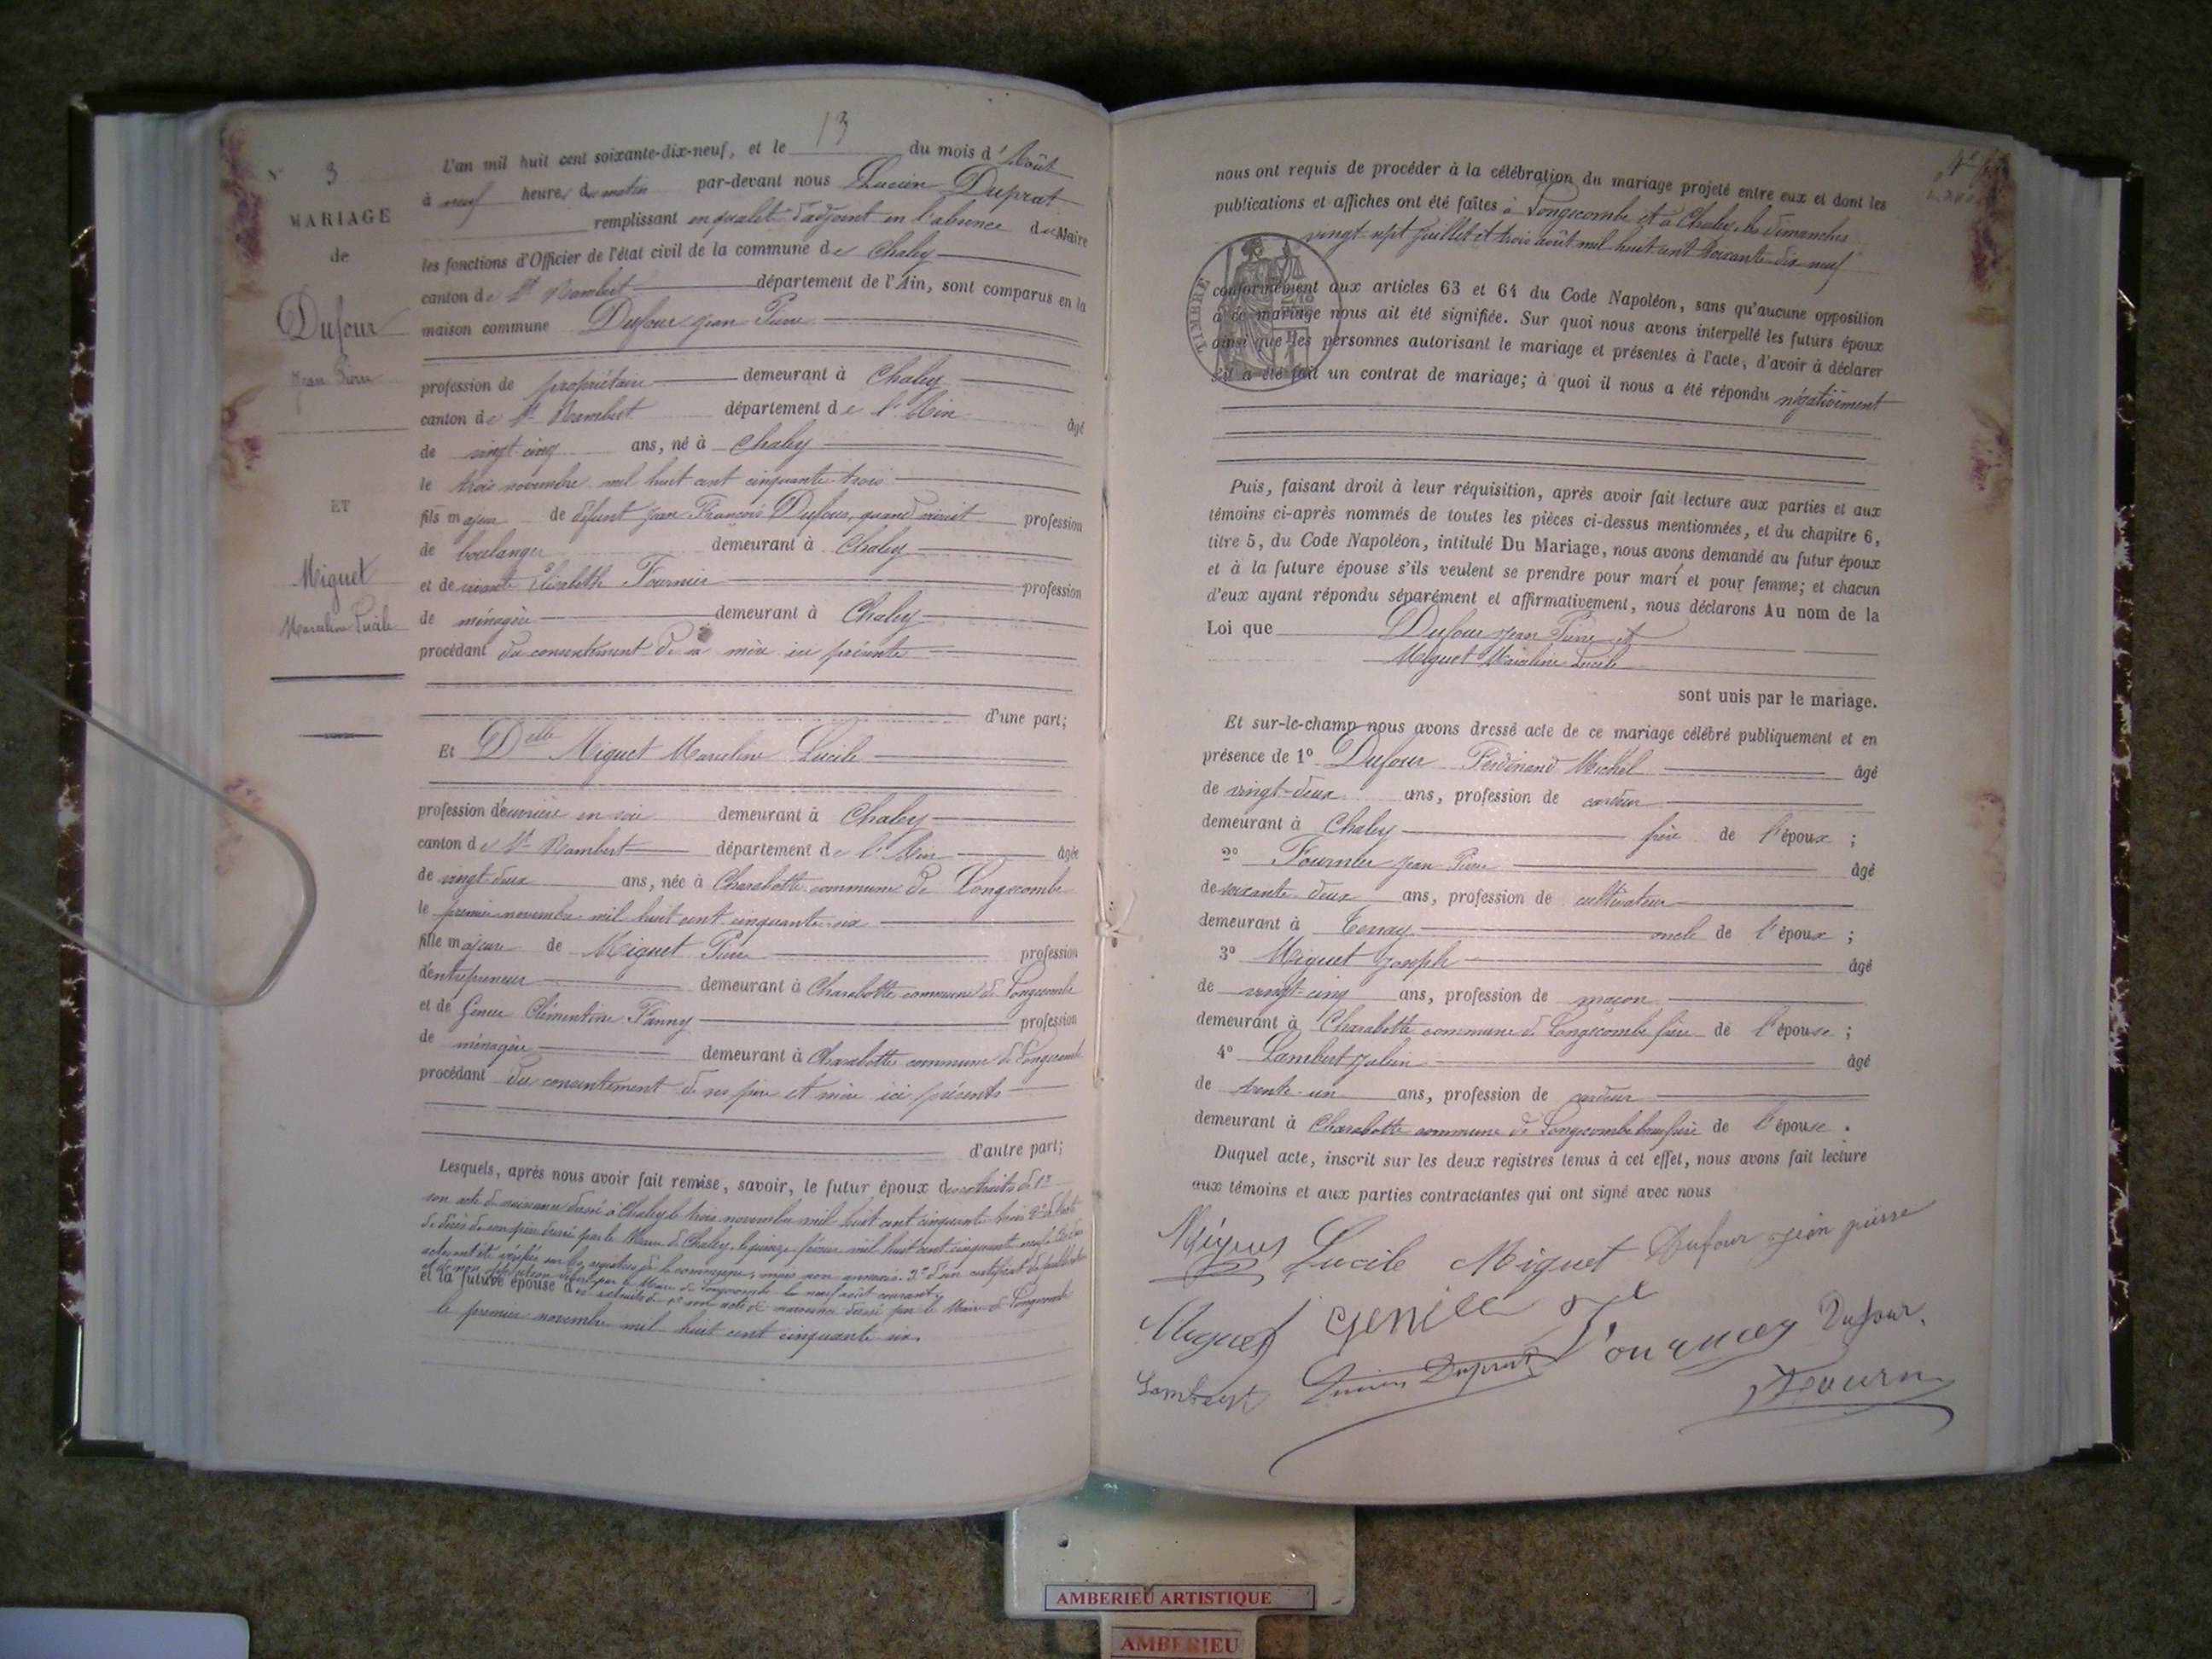 N° 3
MARIAGE
de
Dufour
Jean Pierre
ET
Miguet
Marceline Lucile
L'an mil huit cent soixante-dix-neuf, et le 13 du mois d'Août
à neuf heures du matin par-devant nous Lucien Duprat
remplissant en qualité d'adjoint en l'absence du Maire
les fonctions d'Officier de l'état civil de la commune de Chaley
canton de St Rambert département de l'Ain, sont comparus en la
maison commune Dufour Jean Pierre
profession de propriétaire demeurant à Chaley
canton de St Rambert département de l'Ain âgé
de vingt cinq ans, né à Chaley
le trois novembre mil huit cent cinquante-trois
fils majeur de défunt Jean François Dufour, quand vivait profession
de boulanger demeurant à Chaley
et de vivante Elisabeth Fournier profession
de ménagère demeurant à Chaley
procédant du consentement de sa mère ici présente
d'une part;
Et Delle Miguet Marceline Lucile
profession d'ouvrière en soie demeurant à Chaley
canton de St Rambert département de l'Ain âgée
de vingt-deux ans, née à Charabotte commune de Longecombe
le premier novembre mil huit cent cinquante-six
fille majeure de Miguet Pierre profession
d'entrepreneur demeurant à Charabotte commune de Longecombe
et de Clémentine Fanny profession
de ménagère demeurant à Charabotte commune de Longecombe
procédant du consentement de ses père et mère ici présents
d'autre part;
Lesquels, après nous avoir fait remise, savoir, le futur époux des extraits de 1°
son acte de naissance dressé à Chaley le trois novembre mil huit cent cinquante-trois 2° de l'acte
de décès de son père dressé par le Maire de Chaley, le quinze février mil huit cent cinquante neuf
actes ont été vérifiés sur les registres de la commune, mais non annexés. 3° d'un certificat de publication
et de non opposition délivré par le Maire de Longecombe le neuf août courant
et la future épouse des extraits de 1° son acte de naissance dressé par le Maire de Longecombe
le premier novembre mil huit cent cinquante six.
nous ont requis de procéder à la célébration du mariage projeté entre eux et dont les
publications et affiches ont été faites à Longecombe et à Chaley, les dimanches
vingt-sept juillet et trois août mil huit cent soixante-dix-neuf
TIMBRE
conformément aux articles 63 et 64 du Code Napoléon, sans qu'aucune opposition
à ce mariage nous ait été signifiée. Sur quoi nous avons interpellé les futurs époux
ainsi que les personnes autorisant le mariage et présentes à l'acte, d'avoir à déclarer
s'il a été fait un contrat de mariage; à quoi il nous a été répondu négativement
Puis, faisant droit à leur réquisition, après avoir fait lecture aux parties et aux
témoins ci-après nommés de toutes les pièces ci-dessus mentionnées, et du chapitre 6,
titre 5, du Code Napoléon, intitulé Du Mariage, nous avons demandé au futur époux
et à la future épouse s'ils veulent se prendre pour mari et pour femme; et chacun
d'eux ayant répondu séparément et affirmativement, nous déclarons Au nom de la
Loi que Dufour Jean Pierre et
Miguet Marceline Lucile
sont unis par le mariage.
Et sur-le-champ nous avons dressé acte de ce mariage célébré publiquement et en
présence de 1° Dufour Ferdinand Michel âgé
de vingt-deux ans, profession de cardeur
demeurant à Chaley frère de l'époux ;
2° Fournier Jean Pierre âgé
de soixante-deux ans, profession de cultivateur
demeurant à Tenay oncle de l'époux ;
3° Miguet Joseph âgé
de vingt-cinq ans, profession de maçon
demeurant à Charabotte commune de Longecombe frère de l'épouse ;
4° Lambert Julien âgé
de trente-un ans, profession de cardeur
demeurant à Charabotte commune de Longecombe beau frère de l'épouse .
Duquel acte, inscrit sur les deux registres tenus à cet effet, nous avons fait lecture
aux témoins et aux parties contractantes qui ont signé avec nous
Lucile Miguet Dufour jean pierre
Miguet Dufour
Lambert Lucien Duprat
AMBERIEU ARTISTIQUE
AMBERIEU